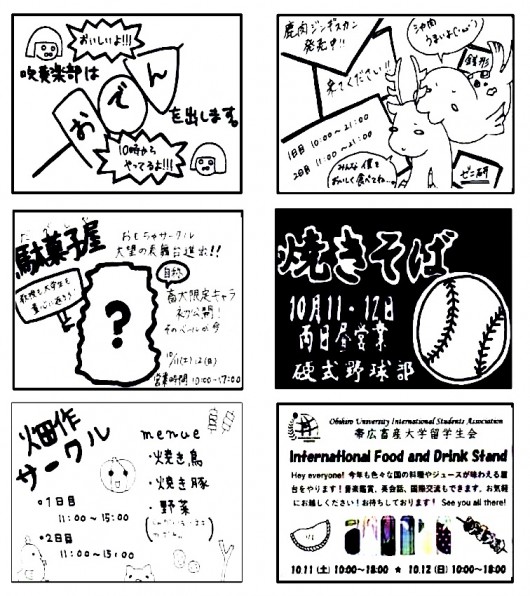 おいしいよ!!!
吹奏楽部は
おでん
を出します。
10時から
やってるよ!!!
鹿肉ジンギスカン
発売中!!
シカ肉
うまいよ(・ω・)
銭形
来てください!!
1日目 10:00〜21:00
2日目 11:00〜21:00
みんな 僕を
おいしく食べてね…。
ゼニ研
駄菓子屋
おもちゃサークル
大望の表舞台進出!!
童心に返ろう!
自称
畜大限定キャラ
初公開!
そのベールが今
?
10/11(土)12(日)
営業時間 10:00〜17:00
焼きそば
10月11・12日
両日昼営業
硬式野球部
畑作
サークル
menue
・焼き鳥
・焼き豚
・野菜
1日目
11:00〜15:00
2日目
11:00〜15:00
Obihiro University International Students Association
帯広畜産大学留学生会
International Food and Drink Stand
Hey everyone! 今年も色々な国の料理やジュースが味わえる屋
台をやります!音楽鑑賞、英会話、国際交流もできます。お気軽
にお越しください!お待ちしております! See you all there!
10.11 (土) 10:00〜18:00 ★ 10.12 (日) 10:00〜18:00